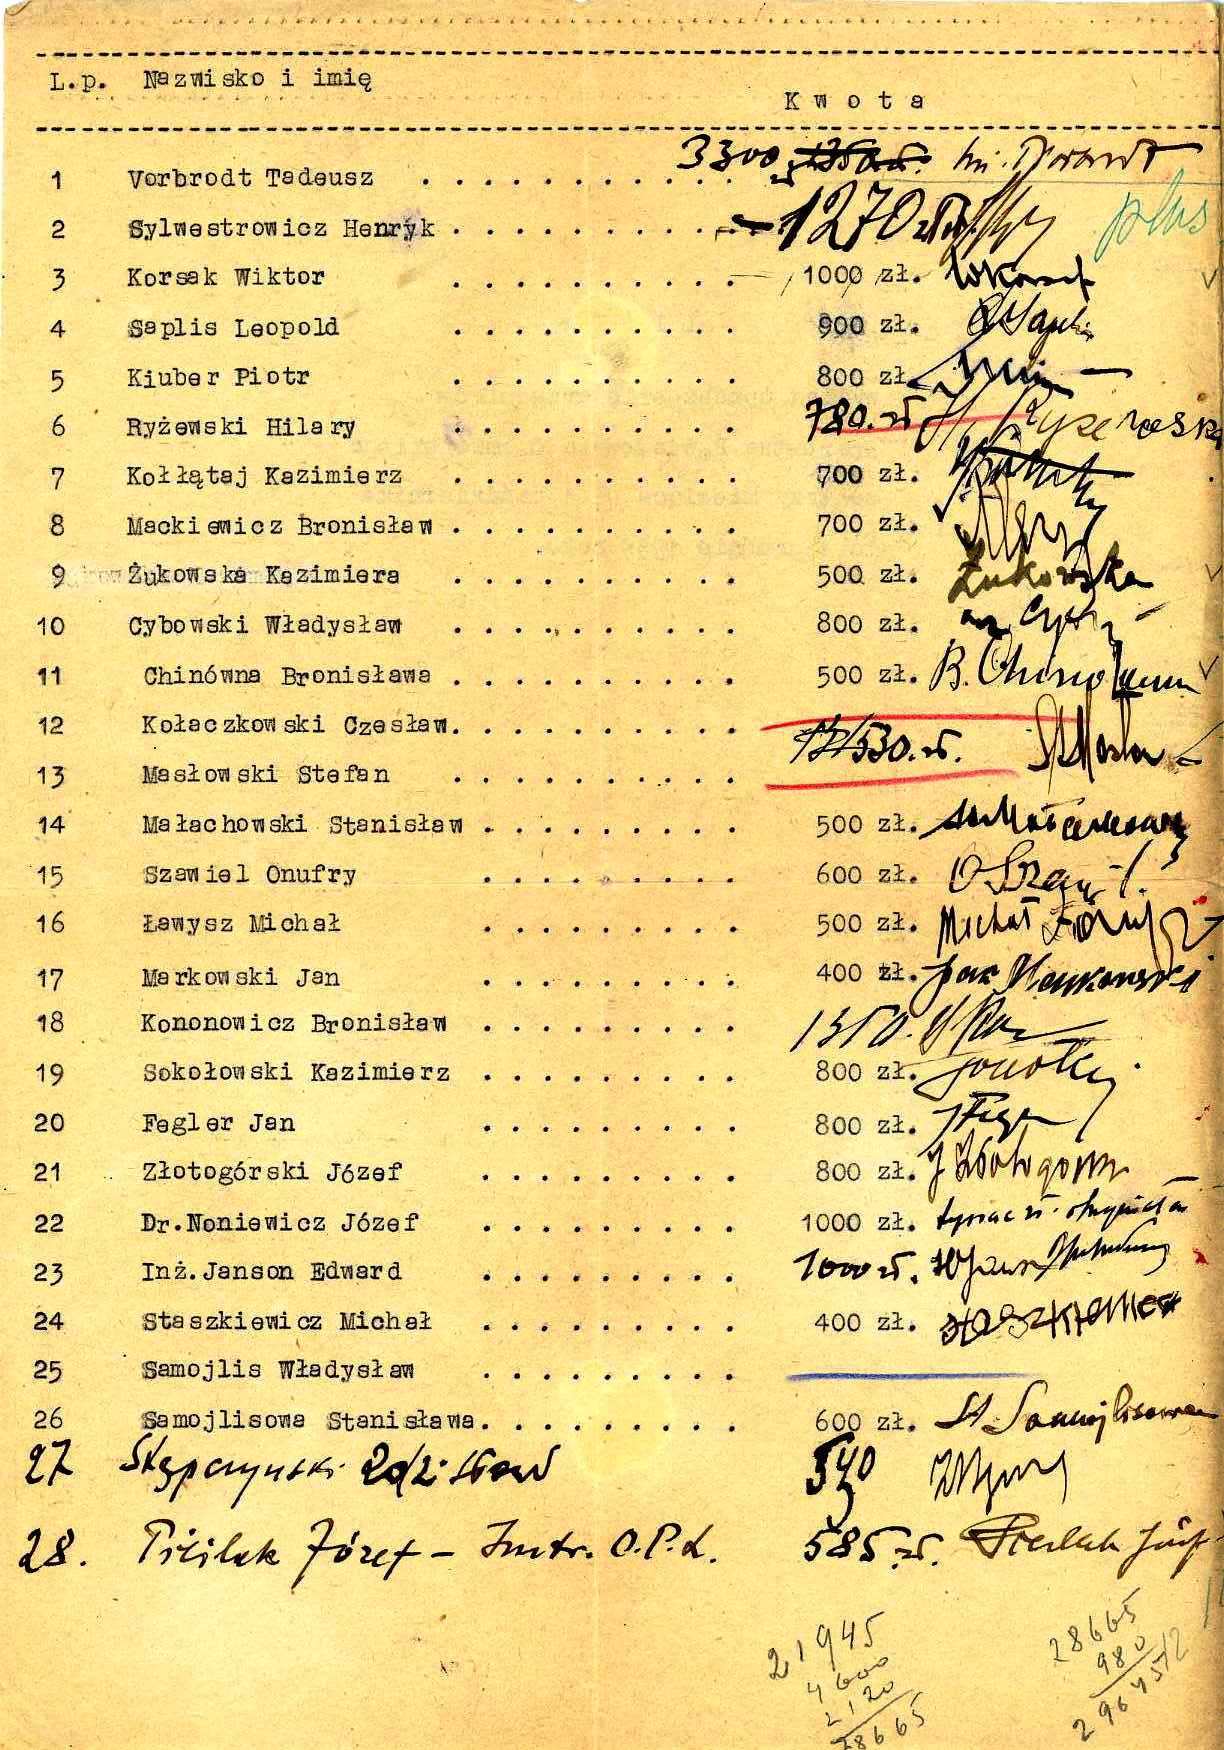 L.p. Nazwisko i imię
Kwota
1 Vorbrodt Tadeusz . . . . . . . . . . . 3300
2 Sylwestrowicz Henryk . . . . . . . . . . 1270 zł. plus
3 Korsak Wiktor . . . . . . . . . . 1000 zł. WKorsak
4 Saplis Leopold . . . . . . . . . . 900 zł.
5 Kiuber Piotr . . . . . . . . . . 800 zł.
6 Ryżewski Hilary . . . . . . . . . . 780.zł Ryżewski
7 Kołłątaj Kazimierz . . . . . . . . . . . 700 zł.
8 Mackiewicz Bronisław . . . . . . . . . . 700 zł.
9 Żukowska Kazimiera . . . . . . . . . . 500 zł. Żukowska
10 Cybowski Władysław . . . . . . . . . . 800 zł.
11 Chinówna Bronisława . . . . . . . . . . 500 zł. B. Chinówna
12 Kołaczkowski Czesław. . . . . . . . . .
13 Masłowski Stefan . . . . . . . . . . 530.zł.
14 Małachowski Stanisław . . . . . . . . . 500 zł.
15 Szawiel Onufry . . . . . . . . . 600 zł.
16 Ławysz Michał . . . . . . . . . 500 zł. Michał Ławysz
17 Markowski Jan . . . . . . . . . 400 zł. Jan Markowski
18 Kononowicz Bronisław . . . . . . . . . 1350.
19 Sokołowski Kazimierz . . . . . . . . . 800 zł.
20 Fegler Jan . . . . . . . . . 800 zł.
21 Złotogórski Józef . . . . . . . . . 800 zł. J Złotogórski
22 Dr.Noniewicz Józef . . . . . . . . . 1000 zł. tysiąc zł. otrzymałem
23 Inż.Janson Edward . . . . . . . . . 1000 zł.
24 Staszkiewicz Michał . . . . . . . . . 400 zł. Staszkiewicz
25 Samojlis Władysław . . . . . . . . .
26 Samojlisowa Stanisława. . . . . . . . . 600 zł. St Samojlisowa
27 Stępczyński Zdzisław 540
28. Pieślak Józef – Instr. O.P.L. 585 zł. Pieślak Józef
21945
4600
2120
28665
28665
980
29645